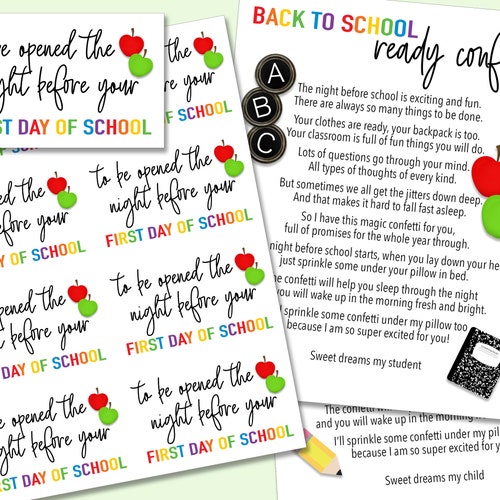 be opened the
night before your
FIRST DAY OF SCHOOL
night before your
FIRST DAY OF SCHOOL
be opened the
night before your
DAY OF SCHOOL
to be opened the
night before your
FIRST DAY OF SCHOOL
be opened the
night before your
DAY OF SCHOOL
to be opened the
night before your
FIRST DAY OF SCHOOL
be opened the
night before your
DAY OF SCHOOL
to be opened the
night before your
FIRST DAY OF SCHOOL
BACK TO SCHOOL
ready
A
B
C
The night before school is exciting and fun.
There are always so many things to be done.
Your clothes are ready, your backpack is too.
Your classroom is full of fun things you will do.
Lots of questions go through your mind.
All types of thoughts of every kind.
But sometimes we all get the jitters down deep.
And that makes it hard to fall fast asleep.
So I have this magic confetti for you,
full of promises for the whole year through.
night before school starts, when you lay down your
just sprinkle some under your pillow in bed.
confetti will help you sleep through the night
you will wake up in the morning fresh and bright.
sprinkle some confetti under my pillow too
because I am so super excited for you!
Sweet dreams my student
The confetti will
and you will wake up in the morning
I'll sprinkle some confetti under my
because I am so super excited for
Sweet dreams my child